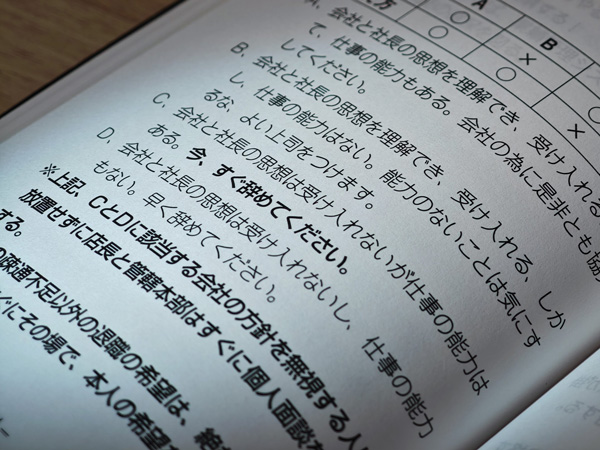 A B
え方 ○ × ○
○ ○ ×
A. 会社と社長の思想を理解でき、受け入れる
て、仕事の能力もある。会社の為に是非とも協
してください。
B. 会社と社長の思想を理解でき、受け入れる、しか
し、仕事の能力はない。能力のないことは気にす
るな、よい上司をつけます。
C. 会社と社長の思想は受け入れないが仕事の能力は
ある。今、すぐ辞めてください。
D. 会社と社長の思想は受け入れないし、仕事の能力
もない。早く辞めてください。
※上記、CとDに該当する会社の方針を無視する人
放置せずに店長と管轄本部はすぐに個人面談を
する。
の疎通不足以外の退職の希望は、絶
ぐにその場で、本人の希望